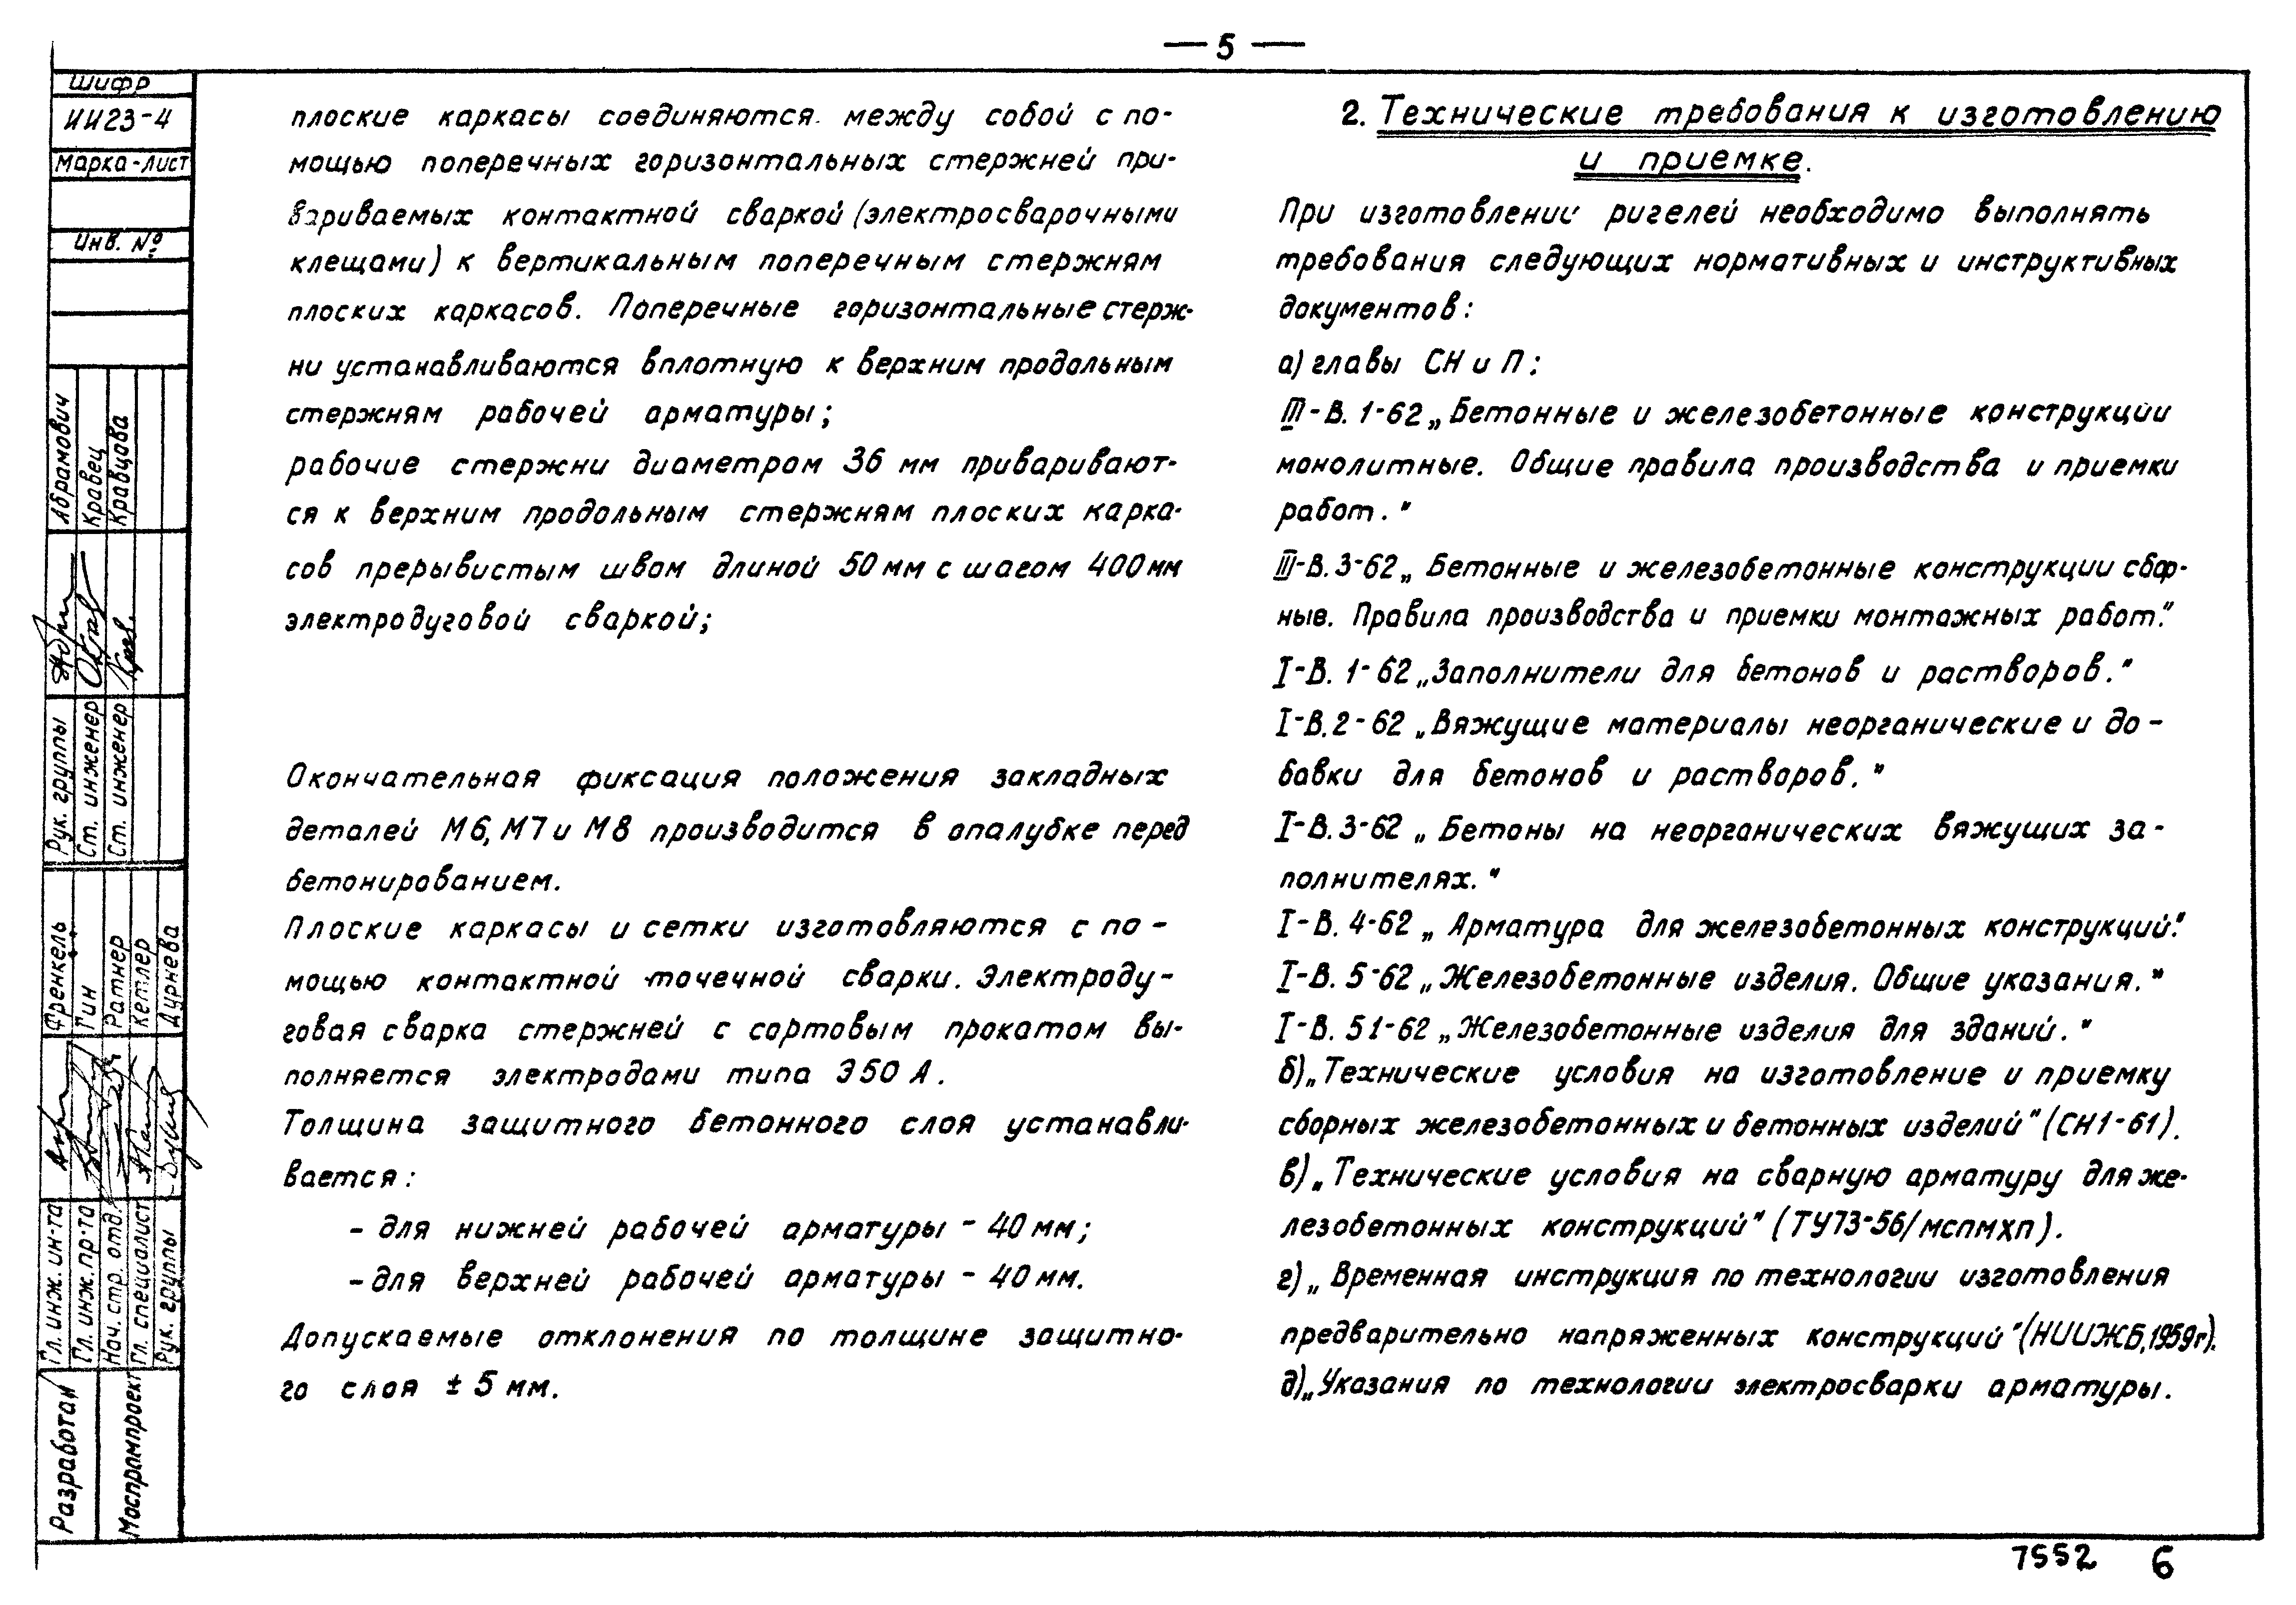 — 5 —
Шифр
ИИ23-4
Марка-лист
Инв. №
Абрамович
Кравец
Кравцова
Рук. группы
Ст. инженер
Ст. инженер
Френкель
Гин
Ратнер
Кетлер
Дурнева
Гл. инж. ин-та
Гл. инж. пр-та
Нач. стр. отд.
Гл. специалист
Рук. группы
Разработан
Моспромпроект
плоские каркасы соединяются между собой с по-
мощью поперечных горизонтальных стержней при-
вариваемых контактной сваркой (электросварочными
клещами) к вертикальным поперечным стержням
плоских каркасов. Поперечные горизонтальные стерж-
ни устанавливаются вплотную к верхним продольным
стержням рабочей арматуры;
рабочие стержни диаметром 36 мм приваривают-
ся к верхним продольным стержням плоских карка-
сов прерывистым швом длиной 50 мм с шагом 400 мм
электродуговой сваркой;
Окончательная фиксация положения закладных
деталей М6, М7 и М8 производится в опалубке перед
бетонированием.
Плоские каркасы и сетки изготовляются с по-
мощью контактной точечной сварки. Электроду-
говая сварка стержней с сортовым прокатом вы-
полняется электродами типа Э50А.
Толщина защитного бетонного слоя устанавли-
вается:
- для нижней рабочей арматуры - 40 мм;
- для верхней рабочей арматуры - 40 мм.
Допускаемые отклонения по толщине защитно-
го слоя ± 5 мм.
2. Технические требования к изготовлению
и приемке.
При изготовлении ригелей необходимо выполнять
требования следующих нормативных и инструктивных
документов:
а) главы СН и П:
III-В. 1-62 „Бетонные и железобетонные конструкции
монолитные. Общие правила производства и приемки
работ."
III-В. 3-62 „Бетонные и железобетонные конструкции сбор-
ные. Правила производства и приемки монтажных работ."
I-В. 1-62 „Заполнители для бетонов и растворов."
I-В. 2-62 „Вяжущие материалы неорганические и до-
бавки для бетонов и растворов."
I-В. 3-62 „Бетоны на неорганических вяжущих за-
полнителях."
I-В. 4-62 „Арматура для железобетонных конструкций."
I-В. 5-62 „Железобетонные изделия. Общие указания."
I-В. 51-62 „Железобетонные изделия для зданий."
б) „Технические условия на изготовление и приемку
сборных железобетонных и бетонных изделий" (СН1-61).
в) „Технические условия на сварную арматуру для же-
лезобетонных конструкций" (ТУ73-56/мспмхп).
г) „Временная инструкция по технологии изготовления
предварительно напряженных конструкций" (НИИЖБ, 1959г).
д) „Указания по технологии электросварки арматуры.
7552 6